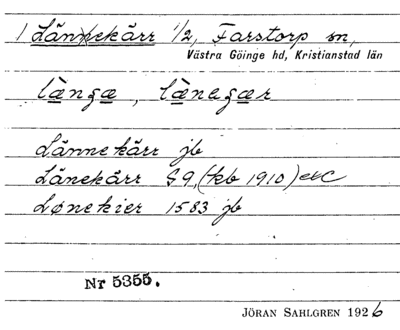 1 Länekärr 1/2, Farstorp sn,
Västra Göinge hd, Kristianstad län
làngæ, lànegær
Lännekärr jb
Länekärr G9, (kb 1910) etc
Lønekier 1583 jb
Nr 5355.
JÖRAN SAHLGREN 1926